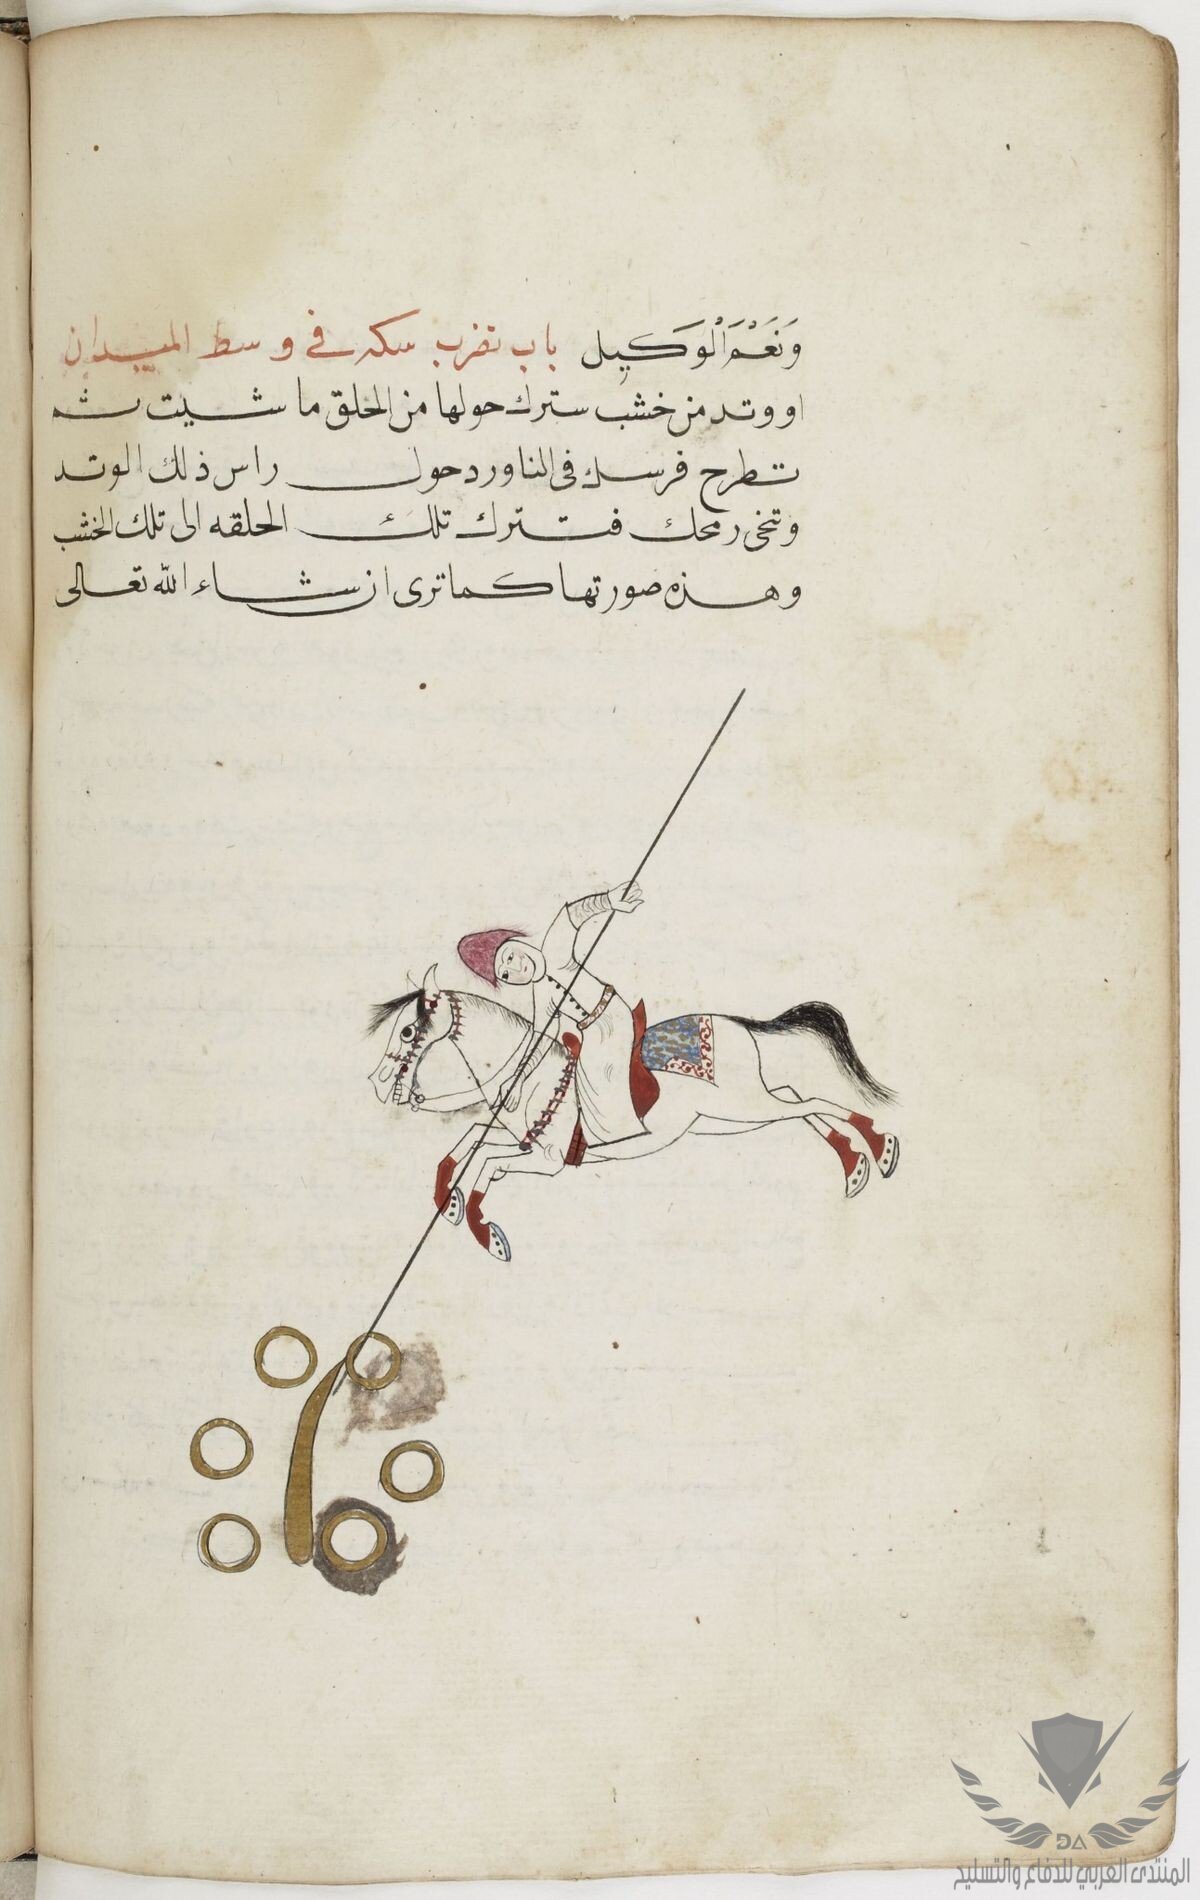 وَنَعْمَ الْوَكِيل باب تضرب سكه في وسط الميدان
او وتد من خشب ستترك حولها من الحلق ما شيت ثم
تطرح فرسك في الناورد حول راس ذلك الوتد
وتخى رمحك فتترك تلك الحلقه الى تلك الخشب
وهذه صورتها كما ترى ان شاء الله تعالى
DA
المنتدى العربي للدفاع والتسليح